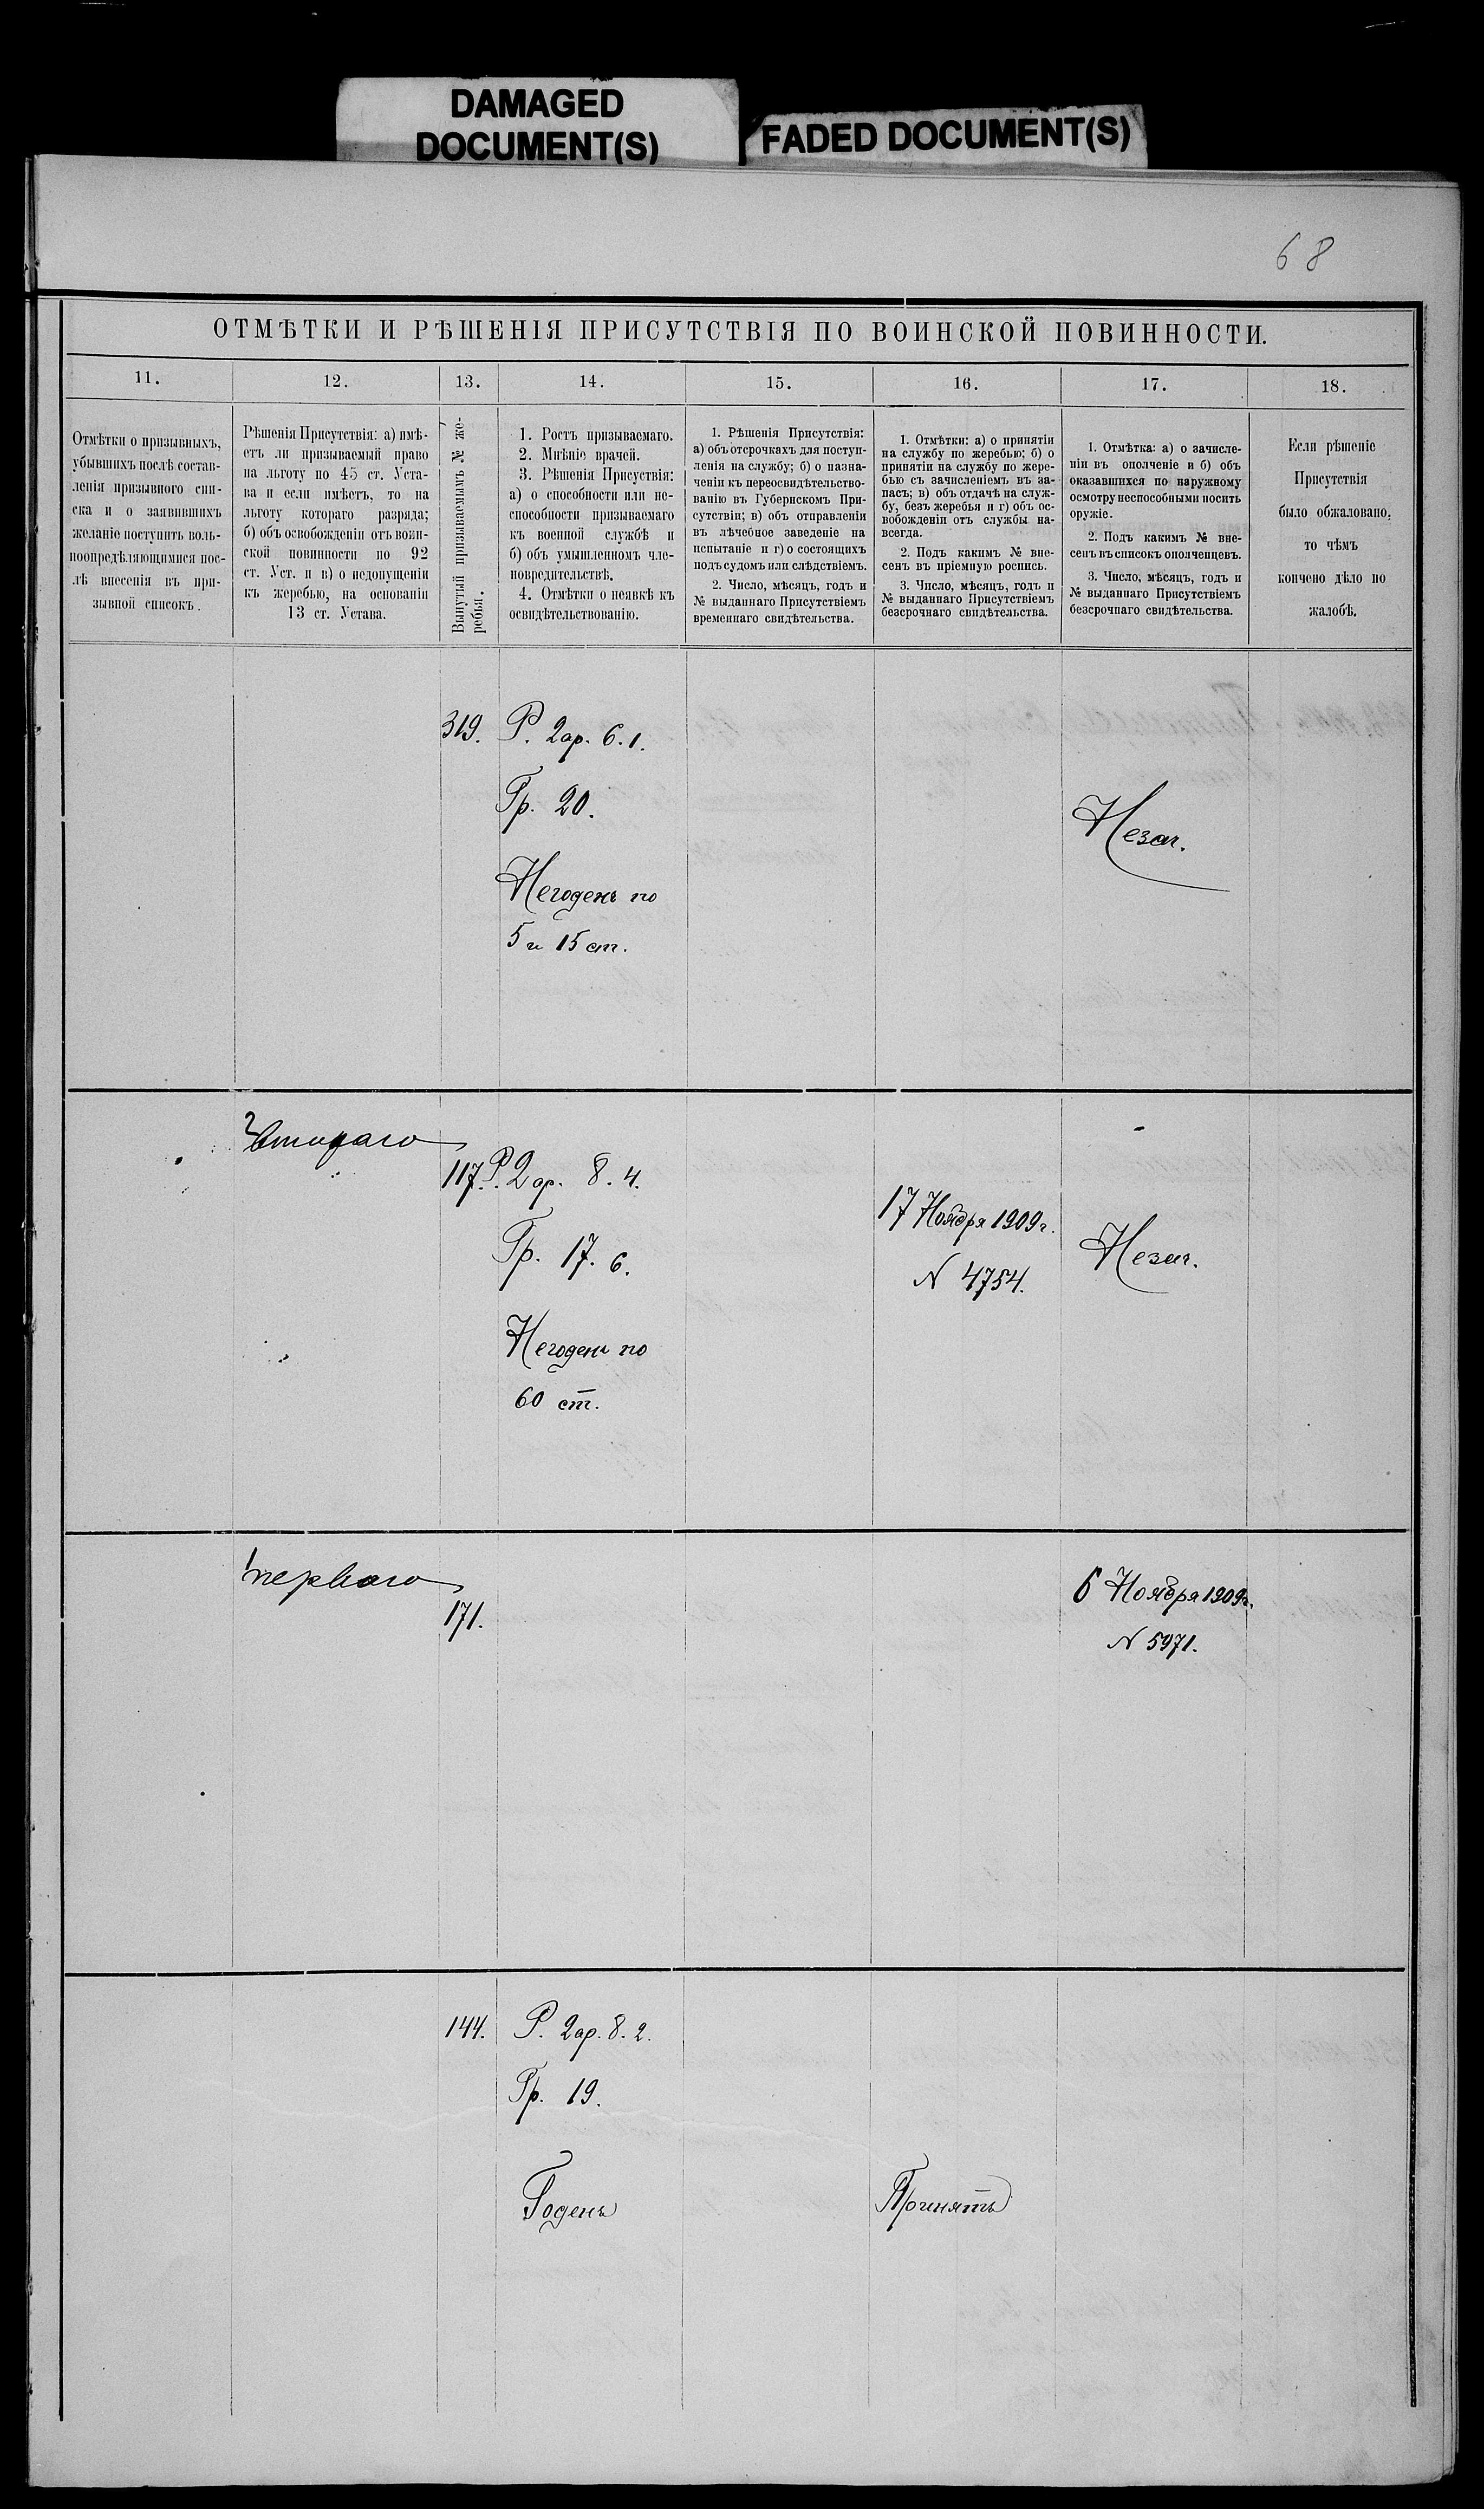 DAMAGED
DOCUMENT(S)
FADED DOCUMENT(S)
68
ОТМѢТКИ И РѢШЕНІЯ ПРИСУТСТВІЯ ПО ВОИНСКОЙ ПОВИННОСТИ.
11.
12.
13.
14.
15.
16.
17.
18.
Отмѣтки о призывныхъ,
убывшихъ послѣ состав-
ленія призывного спи-
ска и о заявившихъ
желаніе поступить воль-
ноопредѣляющимися пос-
лѣ внесенія въ при-
зывной списокъ.
Рѣшенія Присутствія: а) имѣ-
етъ ли призываемый право
на льготу по 45 ст. Уста-
ва и если имѣетъ, то на
льготу котораго разряда;
б) объ освобожденіи отъ воин-
ской повинности по 92
ст. Уст. и в) о недопущеніи
къ жеребью, на основаніи
13 ст. Устава.
Вынутый призываемымъ № же-
ребья.
1. Ростъ призываемаго.
2. Мнѣніе врачей.
3. Рѣшенія Присуствія:
а) о способности или не-
способности призываемаго
къ военной службѣ и
б) объ умышленномъ чле-
новредительствѣ.
4. Отмѣтки о неявкѣ къ
освидѣтельствованію.
1. Рѣшенія Присутствія:
а) объ отсрочкахъ для поступ-
ленія на службу; б) о назна-
ченіи къ переосвидѣтельство-
ванію въ Губернскомъ При-
сутствіи; в) объ отправленіи
въ лѣчебное заведеніе на
испытаніе и г) о состоящихъ
подъ судомъ или слѣдствіемъ.
2. Число, мѣсяцъ, годъ и
№ выданнаго Присутствіемъ
временнаго свидѣтельства.
1. Отмѣтки: а) о принятіи
на службу по жеребью; б) о
принятіи на службу по жере-
бью съ зачисленіемъ въ за-
пасъ; в) объ отдачѣ на служ-
бу, безъ жеребья и г) объ ос-
вобожденіи отъ службы на-
всегда.
2. Подъ какимъ № вне-
сенъ въ пріемную роспись.
3. Число, мѣсяцъ, годъ и
№ выданнаго Присутствіемъ
безсрочнаго свидѣтельства.
1. Отмѣтка: а) о зачисле-
ніи въ ополченіе и б) объ
оказавшихся по наружному
осмотру неспособными носить
оружіе.
2. Подъ какимъ № вне-
сенъ въ списокъ ополченцевъ.
3. Число, мѣсяцъ, годъ и
№ выданнаго Присутствіемъ
безсрочнаго свидѣтельства.
Если рѣшеніе
Присутствія
было обжаловано,
то чѣмъ
кончено дѣло по
жалобѣ.
319.
Р. 2 ар. 6. 1.
Гр. 20.
Негоденъ по
5 и 15 ст.
Незач.
2
Втораго
117.
Р. 2 ар. 8. 4.
Гр. 17. 6.
Негоденъ по
60 ст.
17 Ноября 1909 г.
N 4754.
Незач.
1
перваго
171.
6 Ноября 1909 г.
N 5971.
144.
Р. 2 ар. 8. 2.
Гр. 19.
Годенъ
Принятъ